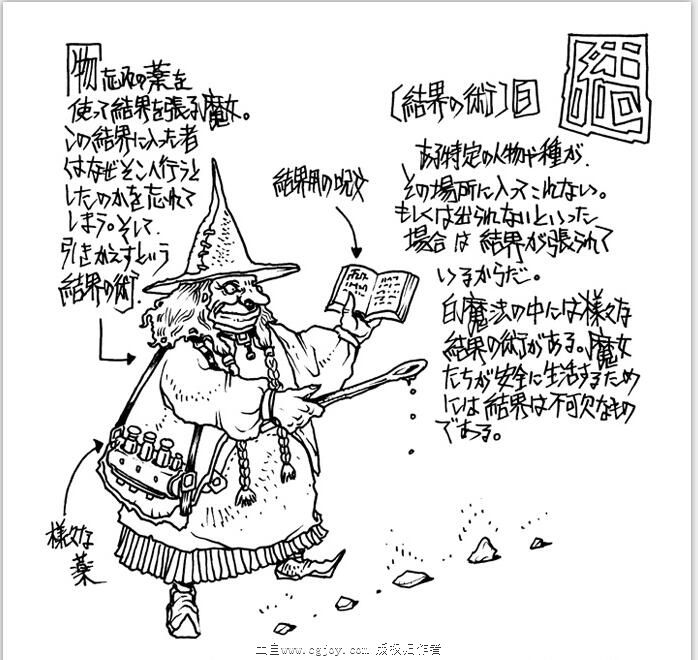 物忘れの薬を
使って結界を張る魔女。
この結界に入った者
はなぜそこへ行こうと
したのかを忘れて
しまう。そして
引きかえすという
結界の術
結界用の呪文
様々な
薬
[結界の術]白
結
ある特定の人物や種が
その場所に入ってこれない。
もしくは出られないといった
場合は結界が張られて
いるからだ。
白魔法の中には様々な
結界の術がある。魔女
たちが安全に生活するため
には結界は不可欠なもの
である。
www.cgjoy.com 版权归作者